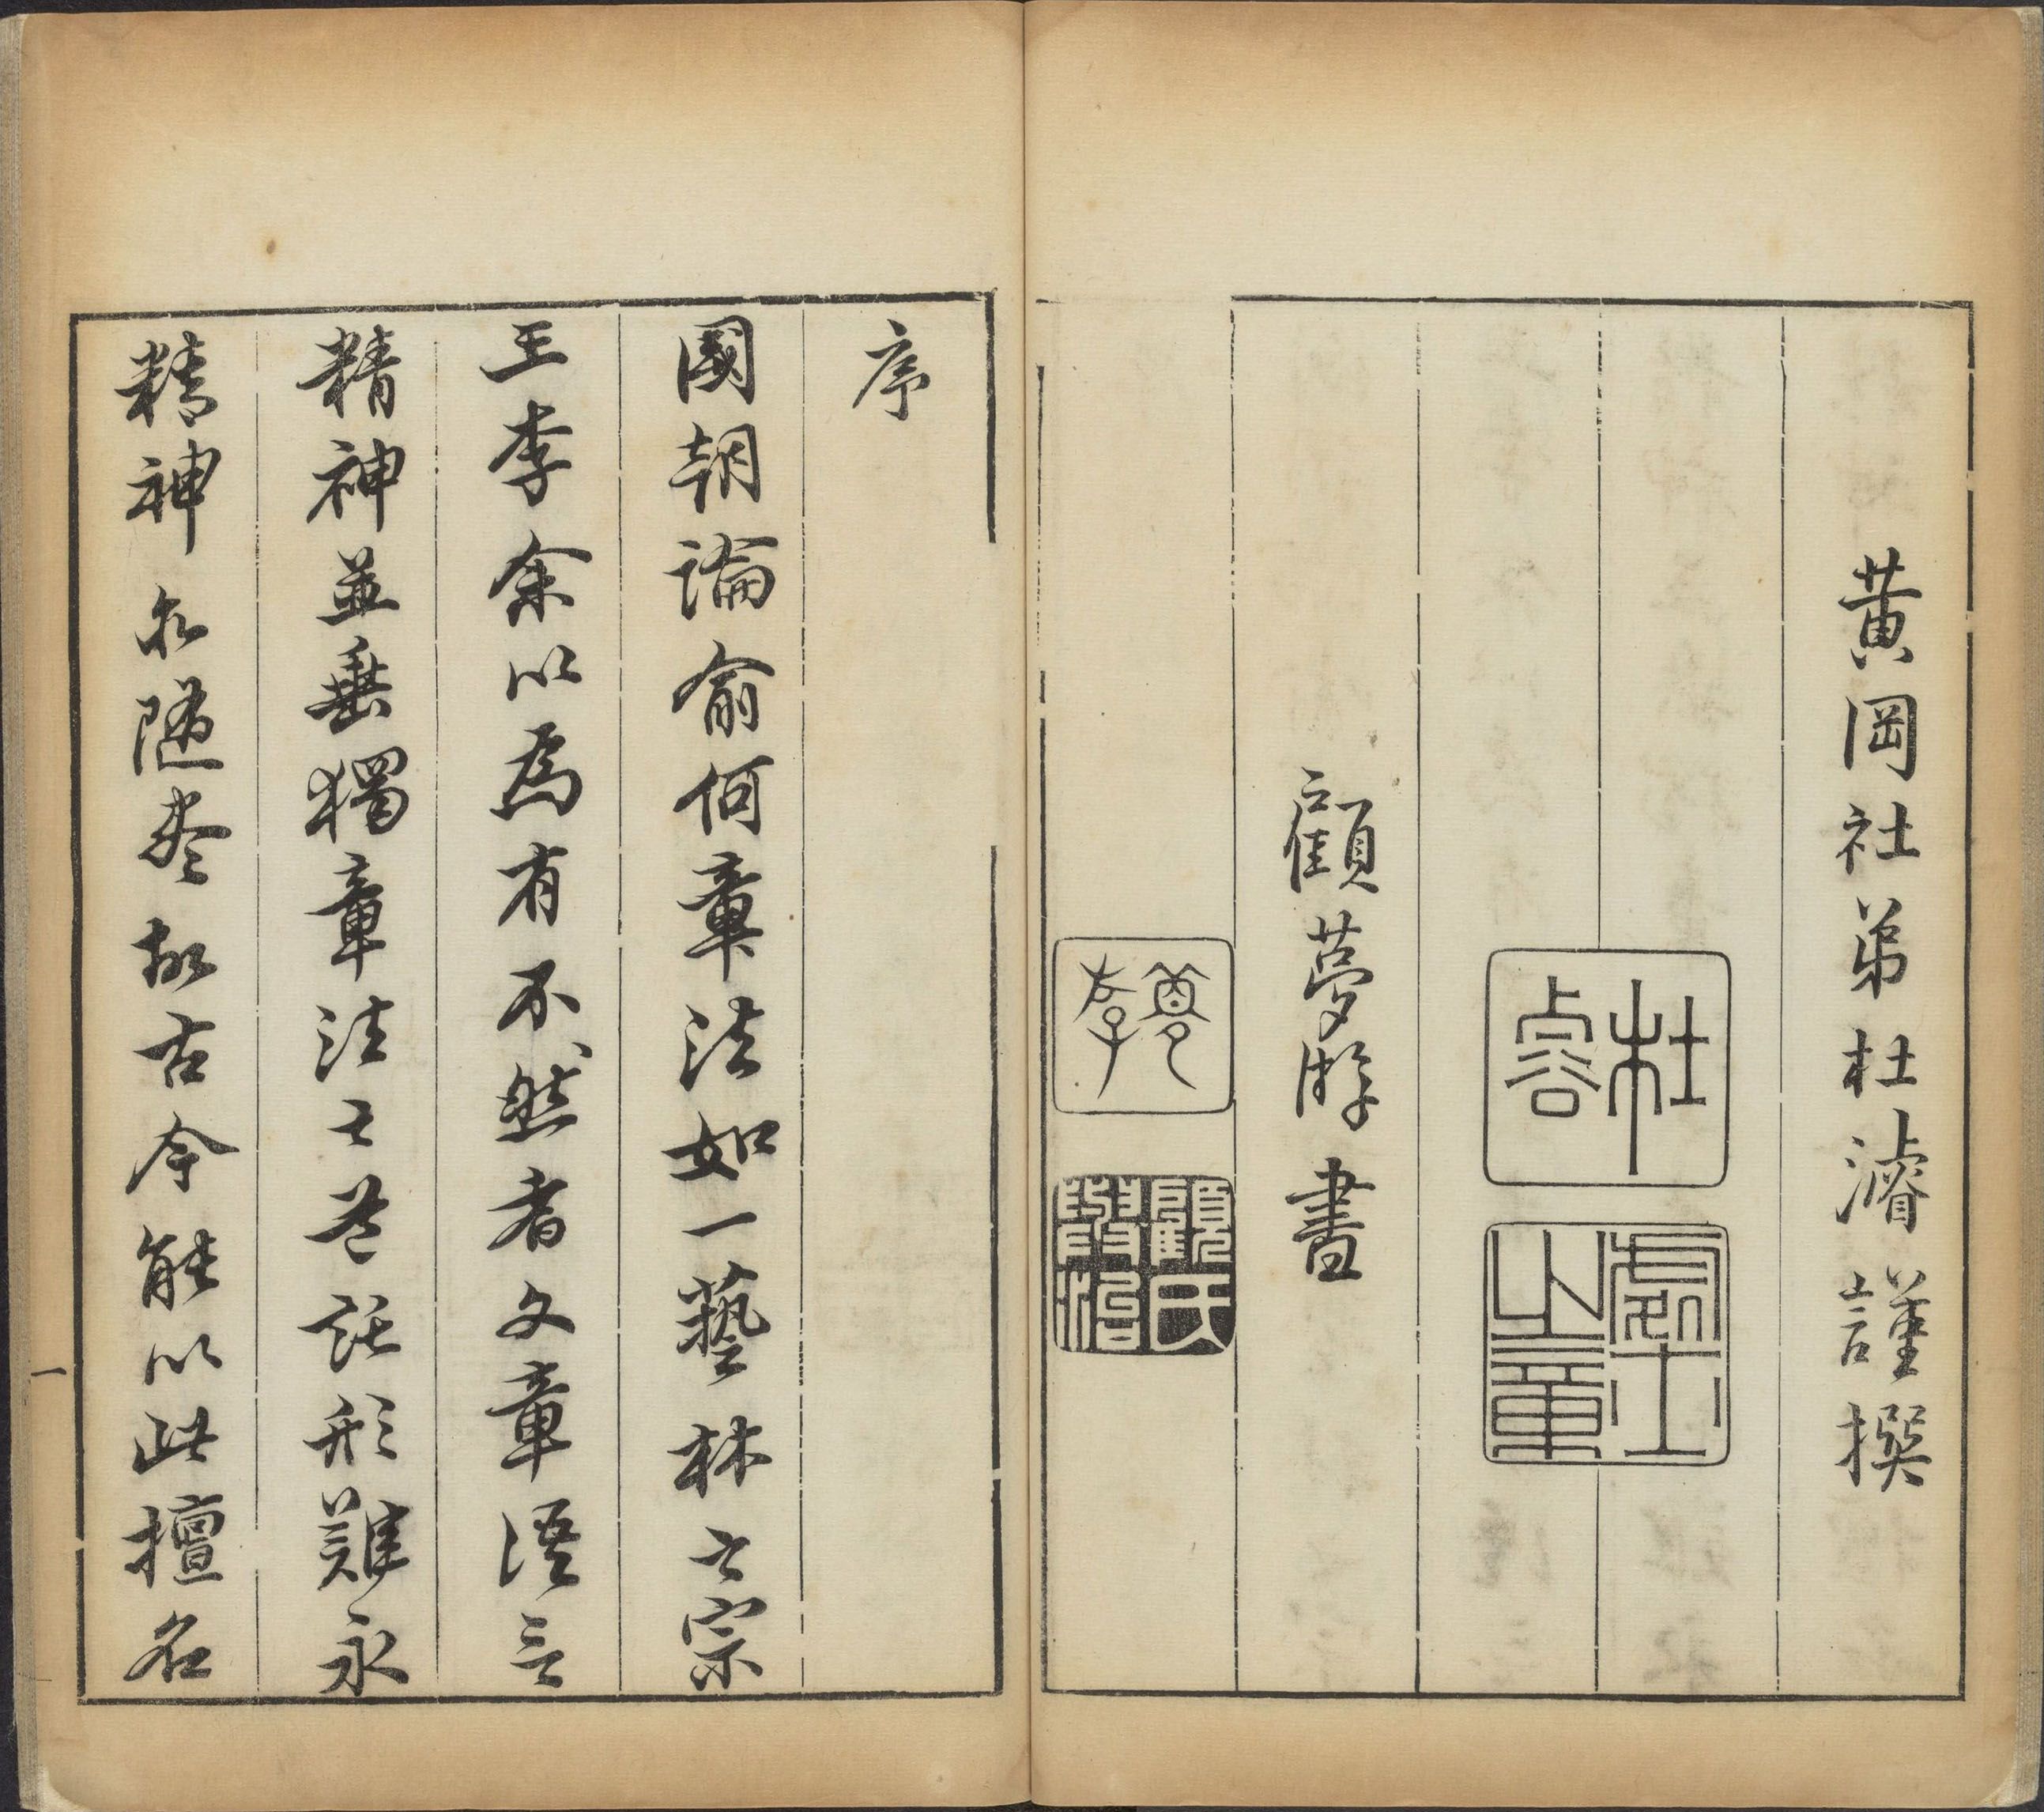 黄岡社弟杜濬謹撰
杜濬
處士之章
顧夢游書
顧氏與治
序
國朝論俞何章法如一藝林之宗
王李余以為有不然者文章語言
精神並垂獨章法之託形難永
精神亦隨盡故古今能以此擅名
一